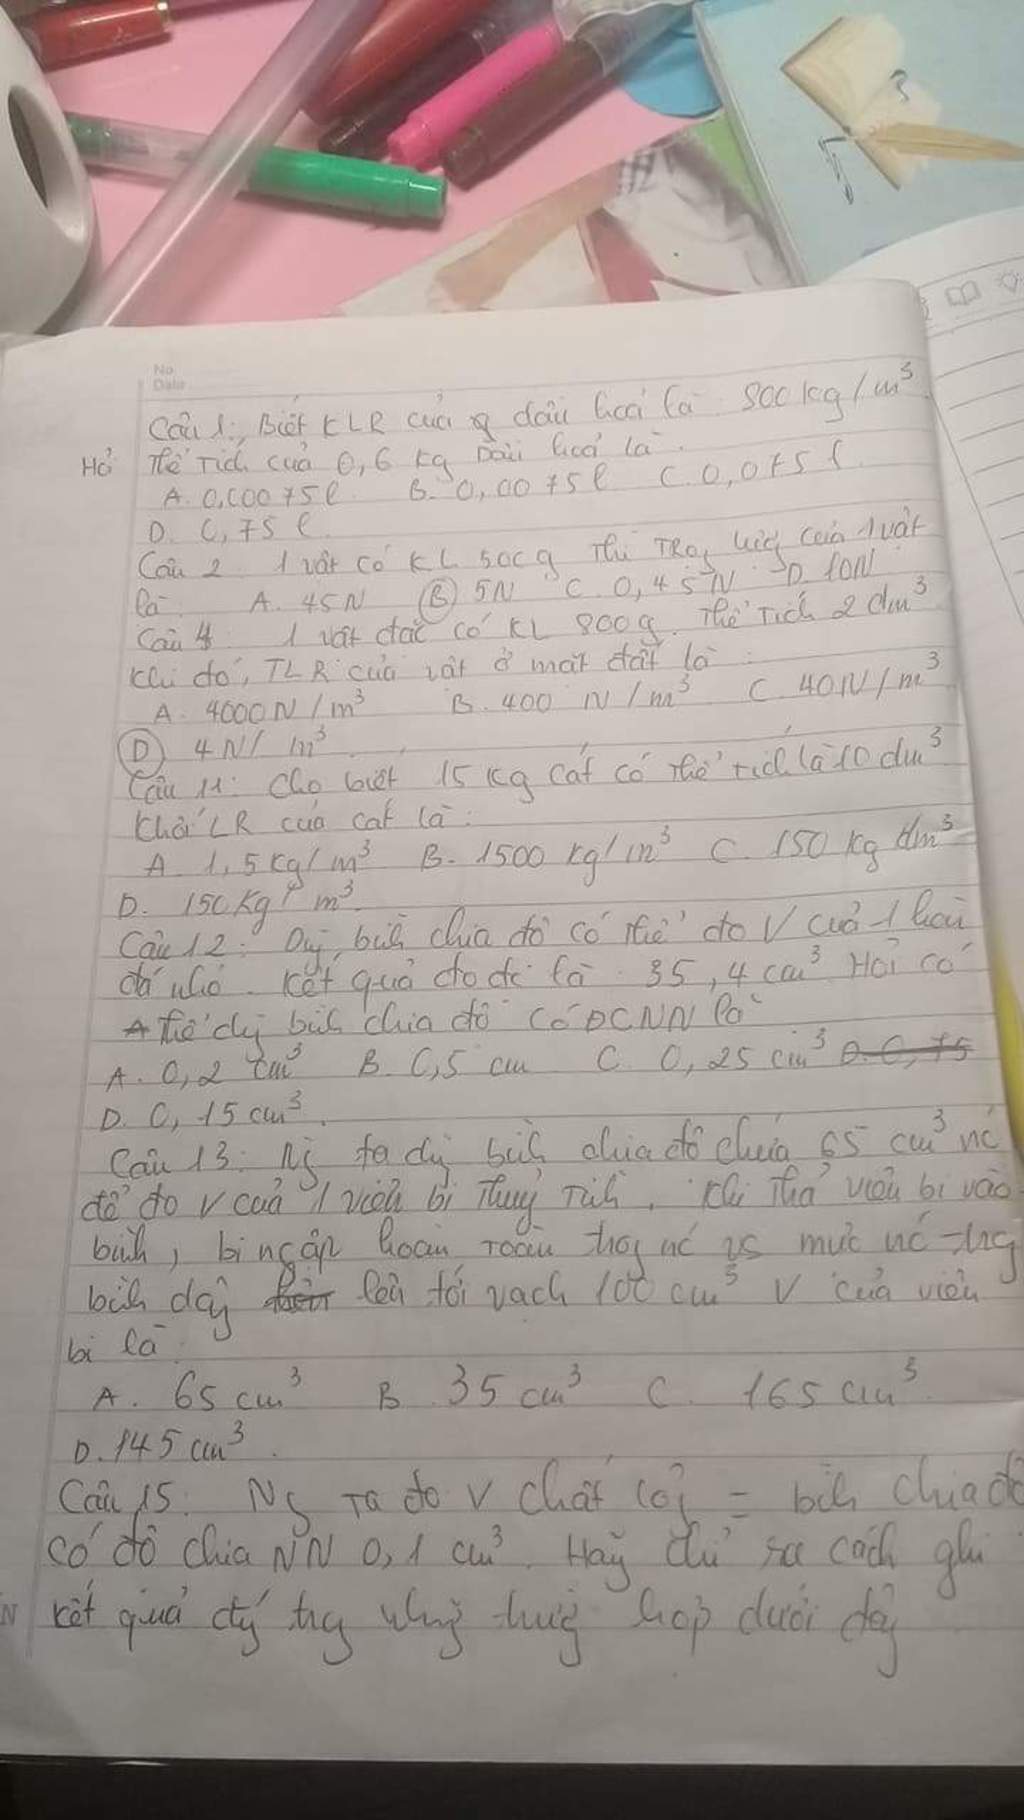 No
Date
Câu 1:, Biết KLR của dầu hoả là 800 kg/m³
Hỏ Thể Tích của 0,6 kg Dầu hoả là
A. 0,00075 l B. 0,0075 l C. 0,075 l
D. 0,75 l
Câu 2 1 vật có KL 500g Thì TRọg lượg của 1 vật
là A. 45N B 5N C 0,45 N D 10N
Câu 4 1 vật đặc có KL 800g. Thể Tích 2 dm³
Khi đó, TLR của vật ở mặt đất là :
A. 4000N/m³ B. 400 N/m³ C. 40N/m³
D 4N/m³
Câu 11: Cho biết 15 kg cát có thể tích là 10 dm³
Khối LR của cát là :
A. 1,5kg/m³ B. 1500 kg/m³ C. 150 kg dm³
D. 150Kg/m³
Câu 12: bìh chia độ có thể đo V của 1 hòn
đá nhỏ. Kết quả đo đc là 35,4 cm³ Hỏi có
thể bìh chia độ có ĐCNN là
A. 0,2 cm³ B. 0,5 cm C. 0,25 cm³ D. 0,75
D. 0,15 cm³.
Câu 13: ta bìh chia độ chứa 65 cm³ nc
để đo V của 1 viên bi Thuỷ Tih. Khi Thả viên bi vào
bìh, bi ngập hoàn Toàn nc mức nc
bìh lên tới vạch 100 cm³ V của viên
bi là
A. 65 cm³ B. 35 cm³ C. 165 cm³.
D. 145 cm³.
Câu 15: Ta đo V chất = bìh chia độ
có độ chia NN 0,1 cm³. Hãy chỉ ra cách ghi
N kết quả hợp dưới đây